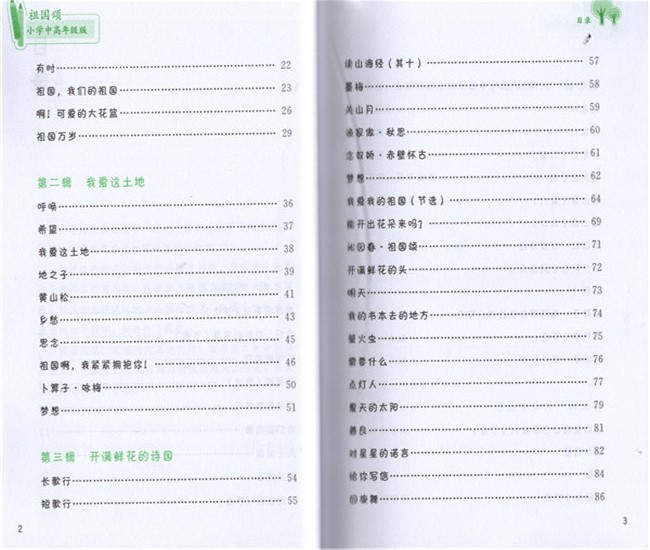 祖国颂
小学中高年级版
有时 22
祖国，我们的祖国 23
啊！可爱的大花篮 26
祖国万岁 29
第二辑 我爱这土地
呼唤 36
希望 37
我爱这土地 38
地之子 39
黄山松 41
乡愁 43
思念 45
祖国啊，我紧紧拥抱你！ 46
卜算子·咏梅 50
梦想 51
第三辑 开满鲜花的诗国
长歌行 54
短歌行 55
2
目录
读山海经（其十） 57
墨梅 58
关山月 59
渔家傲·秋思 60
念奴娇·赤壁怀古 61
梦想 62
我爱我的祖国（节选） 64
能开出花朵来吗？ 69
沁园春·祖国颂 71
开满鲜花的头 72
明天 73
我的书本去的地方 74
萤火虫 75
需要什么 76
点灯人 77
夏天的太阳 79
善良 81
对星星的诺言 82
给你写信 84
回旋舞 86
3